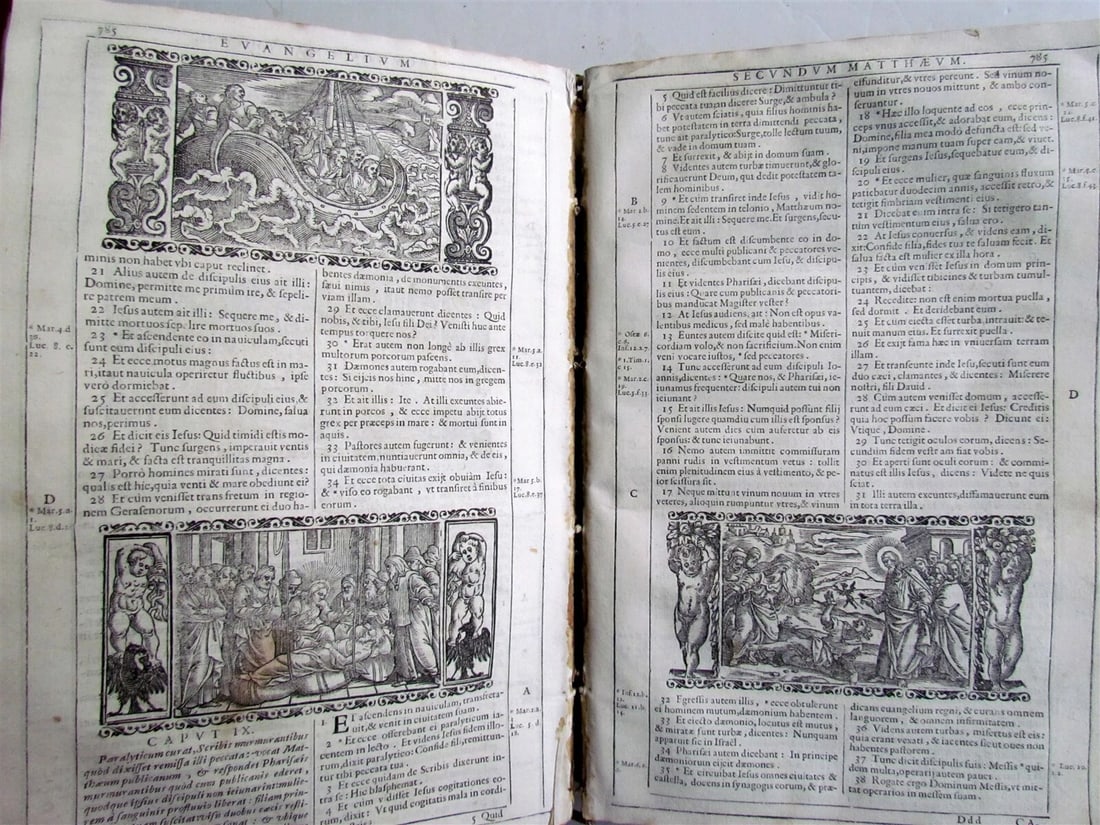 785
EVANGELIVM
minis non habet vbi caput reclinet.
21 Alius autem de discipulis eius ait illi:
Domine, permitte me primùm ire, & sepeli-
re patrem meum.
22 Iesus autem ait illi: Sequere me, & di-
mitte mortuos sepelire mortuos suos.
23 * Et ascendente eo in nauiculam, secuti
sunt eum discipuli eius:
24 Et ecce motus magnus factus est in ma-
ri, itaut nauicula operiretur fluctibus, ipse
verò dormiebat.
25 Et accesserunt ad eum discipuli eius, &
suscitauerunt eum dicentes: Domine, salua
nos, perimus.
26 Et dicit eis Iesus: Quid timidi estis mo-
dicæ fidei? Tunc surgens, imperauit ventis
& mari, & facta est tranquillitas magna.
27 Porrò homines mirati sunt, dicentes:
qualis est hic, quia venti & mare obediunt ei?
28 Et cùm venisset trans fretum in regio-
nem Gerasenorum, occurrerunt ei duo ha-
* Mar. 4. d
Luc. 8. c.
22.
D
* Mar. 5. a.
1.
Luc. 8. d.
bentes dæmonia, de monumentis exeuntes,
sæui nimis, itaut nemo posset transire per
viam illam.
29 Et ecce clamauerunt dicentes: Quid
nobis, & tibi, Iesu fili Dei? Venisti huc ante
tempus torquere nos?
30 * Erat autem non longè ab illis grex
multorum porcorum pascens.
31 Dæmones autem rogabant eum, dicen-
tes: Si eijcis nos hinc, mitte nos in gregem
porcorum.
32 Et ait illis: Ite. At illi exeuntes abie-
runt in porcos, & ecce impetu abijt totus
grex per præceps in mare: & mortui sunt in
aquis.
33 Pastores autem fugerunt: & venientes
in ciuitatem, nuntiauerunt omnia, & de eis,
qui dæmonia habuerant.
34 Et ecce tota ciuitas exijt obuiàm Iesu:
& * viso eo rogabant, vt transiret à finibus
eorum.
* Mar. 5. a.
11.
Luc. 8. e. 32
* Mar. 5. b.
17.
Luc. 8. e. 37
CAPVT IX.
Paralyticum curat, Scribis murmurantibus
quòd dixisset remissa illi peccata: vocat Mat-
thæum publicanum, & respondet Pharisæis
murmurantibus quòd cum publicanis ederet,
quodque ipsius discipuli non ieiunarint: mulie-
rem à sanguinis profluuio liberat: filiam prin-
ET ascendens in nauiculam, transfreta-
uit, & venit in ciuitatem suam.
2 * Et ecce offerebant ei paralyticum ia-
centem in lecto. Et videns Iesus fidem illo-
rum, dixit paralytico: Confide fili, remittun-
tur tibi peccata tua.
3 Et ecce quidam de Scribis dixerunt in-
tra se: Hic blasphemat.
4 Et cùm vidisset Iesus cogitationes eo-
rum, dixit: Vt quid cogitatis mala in cordi-
5 Quid
A
* Mar. 2. a.
Luc. 5. d.
785
SECVNDVM MATTHÆVM.
5 Quid est facilius dicere: Dimittuntur ti-
bi peccata tua: an dicere: Surge, & ambula?
6 Vt autem sciatis, quia filius hominis ha-
bet potestatem in terra dimittendi peccata,
tunc ait paralytico: Surge, tolle lectum tuum,
& vade in domum tuam.
7 Et surrexit, & abijt in domum suam.
8 Videntes autem turbæ timuerunt, & glo-
rificauerunt Deum, qui dedit potestatem ta-
lem hominibus.
9 * Et cùm transiret inde Iesus, vidit ho-
minem sedentem in telonio, Matthæum no-
mine. Et ait illi: Sequere me. Et surgens, secu-
tus est eum.
10 Et factum est discumbente eo in do-
mo, ecce multi publicani & peccatores ve-
nientes, discumbebant cum Iesu, & discipu-
lis eius.
11 Et videntes Pharisæi, dicebant discipu-
lis eius: Quare cum publicanis & peccatori-
bus manducat Magister vester?
12 At Iesus audiens, ait: Non est opus va-
lentibus medicus, sed malè habentibus.
13 Euntes autem discite quid est: * Miseri-
cordiam volo, & non sacrificium. Non enim
veni vocare iustos, * sed peccatores.
14 Tunc accesserunt ad eum discipuli Io-
annis, dicentes: * Quare nos, & Pharisæi, ie-
iunamus frequenter: discipuli autem tui non
ieiunant?
15 Et ait illis Iesus: Numquid possunt filij
sponsi lugere quamdiu cum illis est sponsus?
Venient autem dies cùm auferetur ab eis
sponsus: & tunc ieiunabunt.
16 Nemo autem immittit commissuram
panni rudis in vestimentum vetus: tollit
enim plenitudinem eius à vestimento, & pe-
ior scissura fit.
17 Neque mittunt vinum nouum in vtres
veteres, alioquin rumpuntur vtres, & vinum
B
* Mar. 2. b.
Luc. 5. e. 27
* Osee 6.
* 1. Tim. 1.
* Mar. 2. c.
Luc. 5. f. 33
C
effunditur, & vtres pereunt. Sed vinum no-
uum in vtres nouos mittunt, & ambo con-
seruantur.
18 * Hæc illo loquente ad eos, ecce prin-
ceps vnus accessit, & adorabat eum, dicens:
Domine, filia mea modò defuncta est: sed ve-
ni, impone manum tuam super eam, & viuet.
19 Et surgens Iesus, sequebatur eum, & di-
scipuli eius.
20 * Et ecce mulier, quæ sanguinis fluxum
patiebatur duodecim annis, accessit retro, &
tetigit fimbriam vestimenti eius.
21 Dicebat enim intra se: Si tetigero tan-
tùm vestimentum eius, salua ero.
22 At Iesus conuersus, & videns eam, di-
xit: Confide filia, fides tua te saluam fecit. Et
salua facta est mulier ex illa hora.
23 Et cùm venisset Iesus in domum prin-
cipis, & vidisset tibicines & turbam tumul-
tuantem, dicebat:
24 Recedite: non est enim mortua puella,
sed dormit. Et deridebant eum.
25 Et cùm eiecta esset turba, intrauit: & te-
nuit manum eius. Et surrexit puella.
26 Et exijt fama hæc in vniuersam terram
illam.
27 Et transeunte inde Iesu, secuti sunt eum
duo cæci, clamantes, & dicentes: Miserere
nostri, fili Dauid.
28 Cùm autem venisset domum, accesse-
runt ad eum cæci. Et dicit ei Iesus: Creditis
quia hoc possum facere vobis? Dicunt ei:
Vtique, Domine.
29 Tunc tetigit oculos eorum, dicens: Se-
cundùm fidem vestram fiat vobis.
30 Et aperti sunt oculi eorum: & commi-
natus est illis Iesus, dicens: Videte ne quis
sciat.
31 Illi autem exeuntes, diffamauerunt eum
in tota terra illa.
* Mar. 5. c.
22.
Luc. 8. f. 41.
Luc. 8. f. 43.
D
32 Egressis autem illis, * ecce obtulerunt
ei hominem mutum, dæmonium habentem.
33 Et eiecto dæmonio, locutus est mutus,
& miratæ sunt turbæ, dicentes: Nunquam
apparuit sic in Israël.
34 Pharisæi autem dicebant: In principe
dæmoniorum eijcit dæmones.
35 * Et circuibat Iesus omnes ciuitates &
castella, docens in synagogis eorum, & præ-
Luc. 11. b.
14.
dicans euangelium regni, & curans omnem
languorem, & omnem infirmitatem.
36 Videns autem turbas, misertus est eis:
quia erant vexati, & iacentes sicut oues non
habentes pastorem.
37 Tunc dicit discipulis suis: Messis * qui-
dem multa, operarij autem pauci.
38 Rogate ergo Dominum Messis, vt mit-
tat operarios in messem suam.
* Luc. 10.
Ddd
CA-